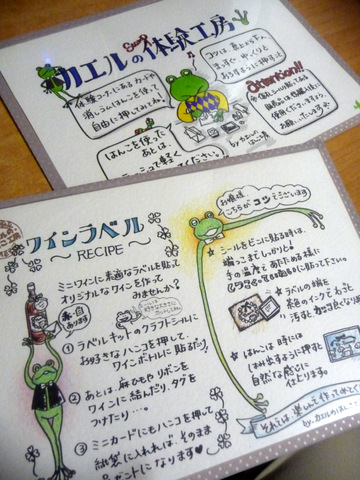 カエルのStamp体験工房
体験コーナーにあるカードや
消しゴムはんこを使って
自由に押してみてね。
コツは、真上から下へ
まっすぐ ゆっくりと
おろすように押すコト
Attention!!
はんこを使った
あとは、
ティッシュで軽く
ください。
お願い…します
by.カエルのはんこ
ワインラベル
～RECIPE～
ミニワインに素敵なラベルを貼って
オリジナルなワインを作って
みませんか?
赤・白
あります
① ラベルキットのクラフトシールに
お好きなハンコを押して、
ワインボトルに貼るだけ!
② あとは、麻ひもやリボンを
ワインに結んだり、タグを
つけたり…。
③ ミニカードにもハンコを押して
紙袋に入れれば そのまま
プレゼントになります♥
お客様
こちらが コツでございます
☆ シールをビンに貼る時は、
輪っこまでしっかりと!
手の温度であたためる様に
貼って下さい。
ラベルの端を
茶色のインクでわざと
汚すとカッコよくなるよ
☆ はんこは時には
はみ出すように押すと
自然な感じに
仕上がります。
それでは、楽しんで作ってみて
by.カエルのはんこ